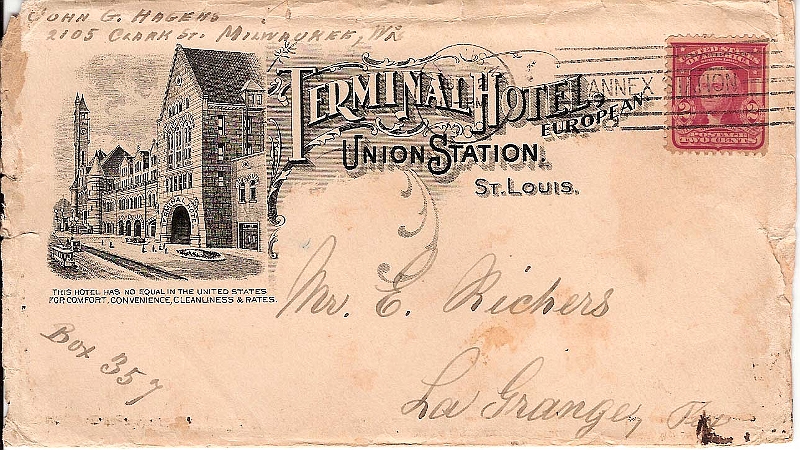 JOHN G. HAGENS
2105 CLARK ST. MILWAUKEE, WA
TERMINAL HOTEL,
EUROPEAN.
UNION STATION.
ST. LOUIS.
ANNEX STATION
UNITED STATES
OF AMERICA
2 2
POSTAGE
TWO CENTS
THIS HOTEL HAS NO EQUAL IN THE UNITED STATES
FOR COMFORT, CONVENIENCE, CLEANLINESS & RATES.
Mr. E. Richers
Box 357
La Grange,